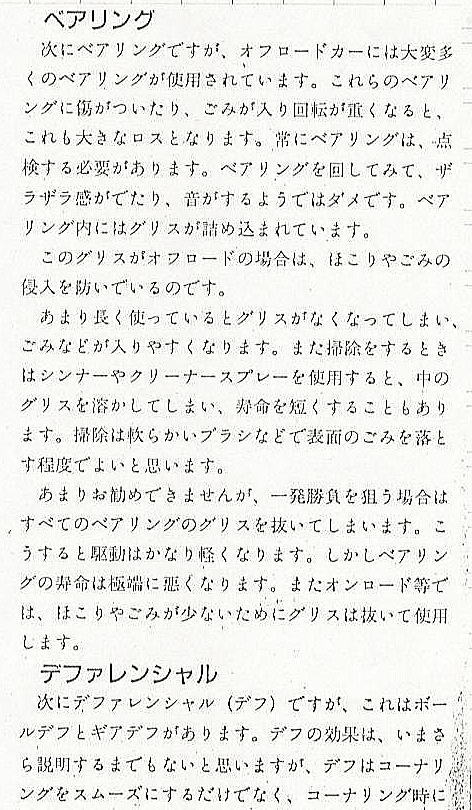 ベアリング
次にベアリングですが、オフロードカーには大変多
くのベアリングが使用されています。これらのベアリ
ングに傷がついたり、ごみが入り回転が重くなると、
これも大きなロスとなります。常にベアリングは、点
検する必要があります。ベアリングを回してみて、ザ
ラザラ感がでたり、音がするようではダメです。ベア
リング内にはグリスが詰め込まれています。
このグリスがオフロードの場合は、ほこりやごみの
侵入を防いでいるのです。
あまり長く使っているとグリスがなくなってしまい、
ごみなどが入りやすくなります。また掃除をするとき
はシンナーやクリーナースプレーを使用すると、中の
グリスを溶かしてしまい、寿命を短くすることもあり
ます。掃除は軟らかいブラシなどで表面のごみを落と
す程度でよいと思います。
あまりお勧めできませんが、一発勝負を狙う場合は
すべてのベアリングのグリスを抜いてしまいます。こ
うすると駆動はかなり軽くなります。しかしベアリン
グの寿命は極端に悪くなります。またオンロード等で
は、ほこりやごみが少ないためにグリスは抜いて使用
します。
デファレンシャル
次にデファレンシャル（デフ）ですが、これはボー
ルデフとギアデフがあります。デフの効果は、いまさ
ら説明するまでもないと思いますが、デフはコーナリ
ングをスムーズにするだけでなく、コーナリング時に